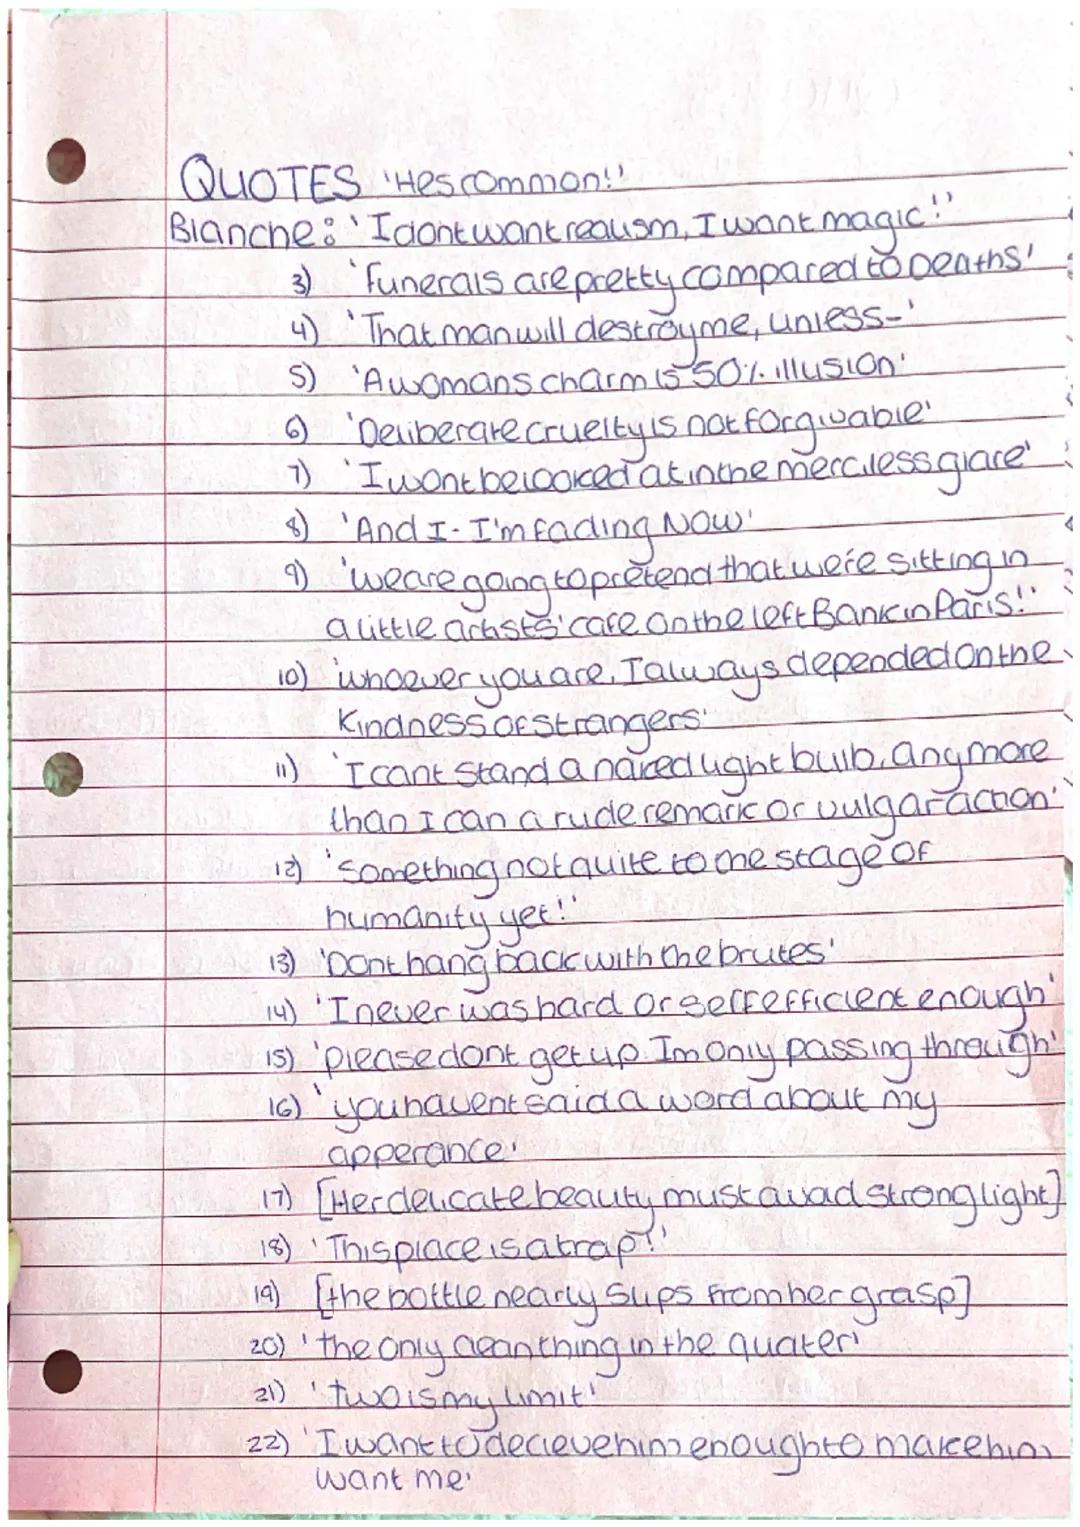 QUOTES 'Hes common!'
Blanche: 'I dont want realism, I want magic!'
3) 'Funerals are pretty compared to Deaths'
4) 'That man will destroy me, unless-'
5) 'A womans charm is 50% illusion'
6) 'Deliberate cruelty is not forgivable'
7) 'I wont be looked at in the merciless glare'
8) 'And I- I'm fading Now'
9) 'we are going to pretend that we're sitting in
a little artists' cafe on the left Bank in Paris!'
10) 'whoever you are, I always depended on the
Kindness of strangers'
11) 'I cant stand a naked light bulb, anymore
than I can a rude remark or vulgar action'
12) 'something not quite to the stage of
humanity yet!'
13) 'Dont hang back with the brutes'
14) 'I never was hard or self efficient enough'
15) 'please dont get up. Im only passing through'
16) 'you havent said a word about my
apperance'
17) [Her delicate beauty must avoid strong light]
18) 'This place is a trap!'
19) [the bottle nearly slips from her grasp]
20) 'the only clean thing in the quater'
21) 'two is my limit'
22) 'I want to decieve him enough to make him
want me'